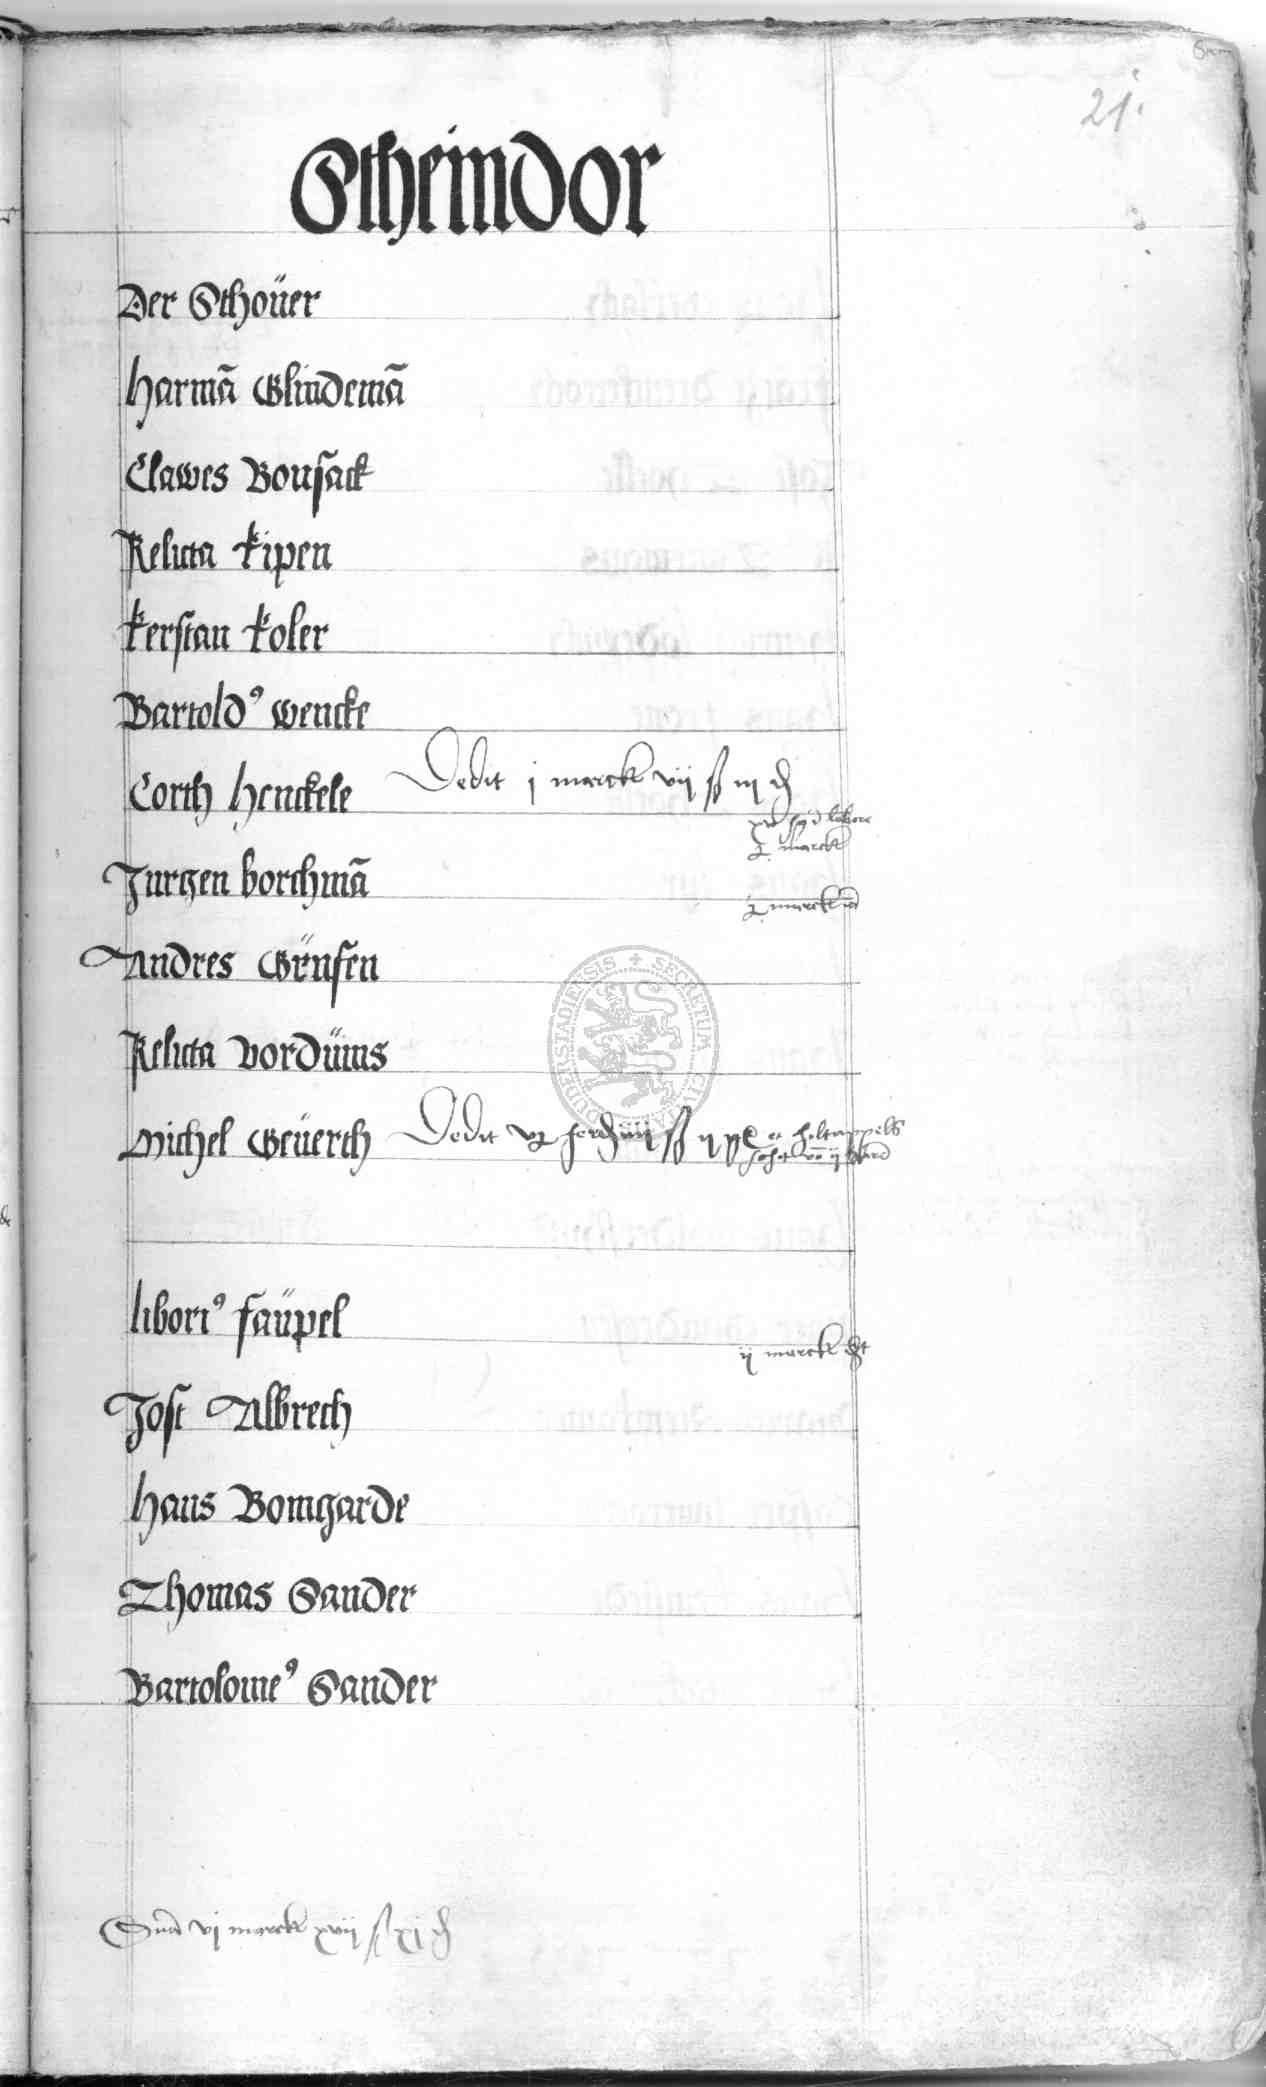 21.
Stheindor
Der Sthoüer
Harmā Glindemā
Clawes Bousack
Relicta Kipen
Kerstan Koler
Bartoldꝰ Wencke
Corth Henckele Dedit j marck vij ß iij ₰
marck
Jurgen borchmā
marck
Andres Grusen
Relicta Vordüins
Michel Geüerth Dedit
liboriꝰ faüpel
ij marck
Jost Albrech
Hans Bomgarde
Thomas Sander
Bartolomeꝰ Sander
Sūa vj marck xvij ß xj ₰
DUDERSTADIENSIS + SECRETUM CIVITATIS